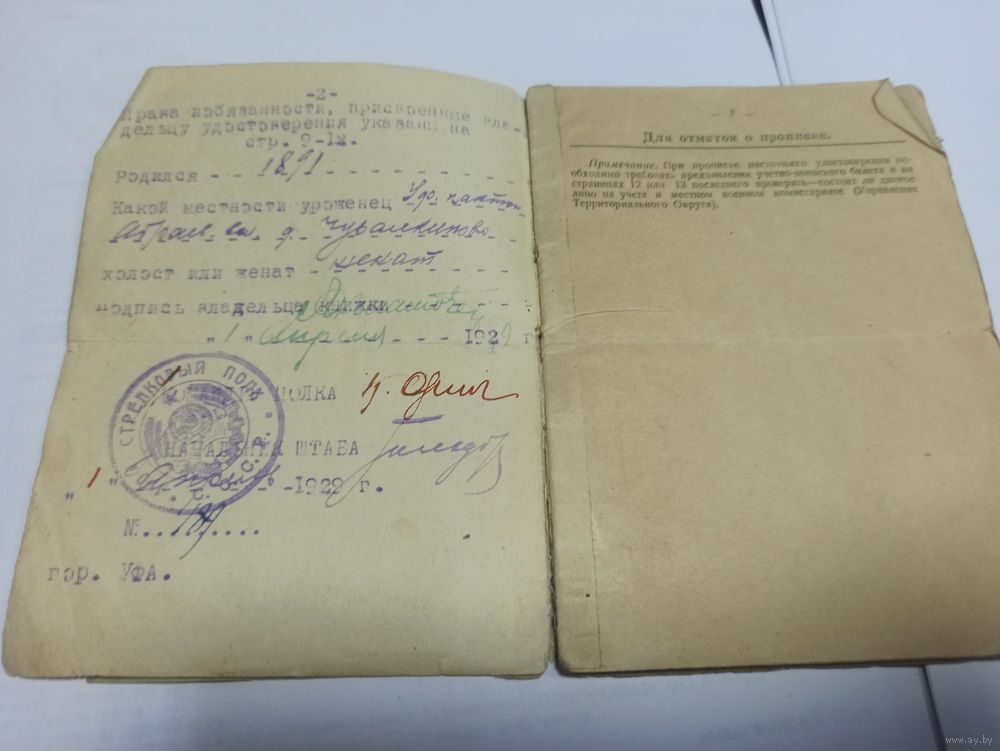 -2-
Права и обязанности, присвоенные вла-
дельцу удостоверения указаны на
стр. 9-12.
Родился - - 1891 - - - - - - -
Какой местности уроженец
холост или женат - женат - - - - -
Подпись владельца книжки
" 1 " апреля - - - 1929 г
СТРЕЛКОВЫЙ ПОЛК
С.С.С.Р.
ПОЛКА
НАЧАЛЬНИК ШТАБА
" 1 " апреля 1929 г.
№
гор. УФА.
— 3 —
Для отметок о прописке.
Примечание. При прописке настоящего удостоверения не-
обходимо требовать предъявления учетно-воинского билета и на
страницах 12 или 13 последнего проверить—состоит ли данное
лицо на учете в местном военном комиссариате (Управление
Территориального Округа).
www.ay.by